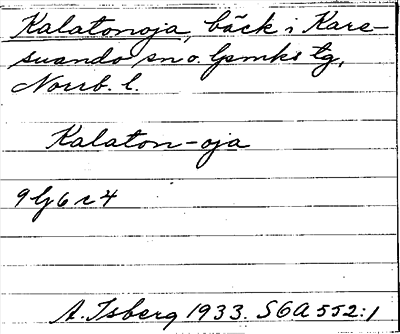 Kalatonoja, bäck i Kare-
suando sn o. lpmks tg,
Norrb. l.
Kalaton-oja
9 lj 6 c 4
A. Isberg 1933. SGA 552:1